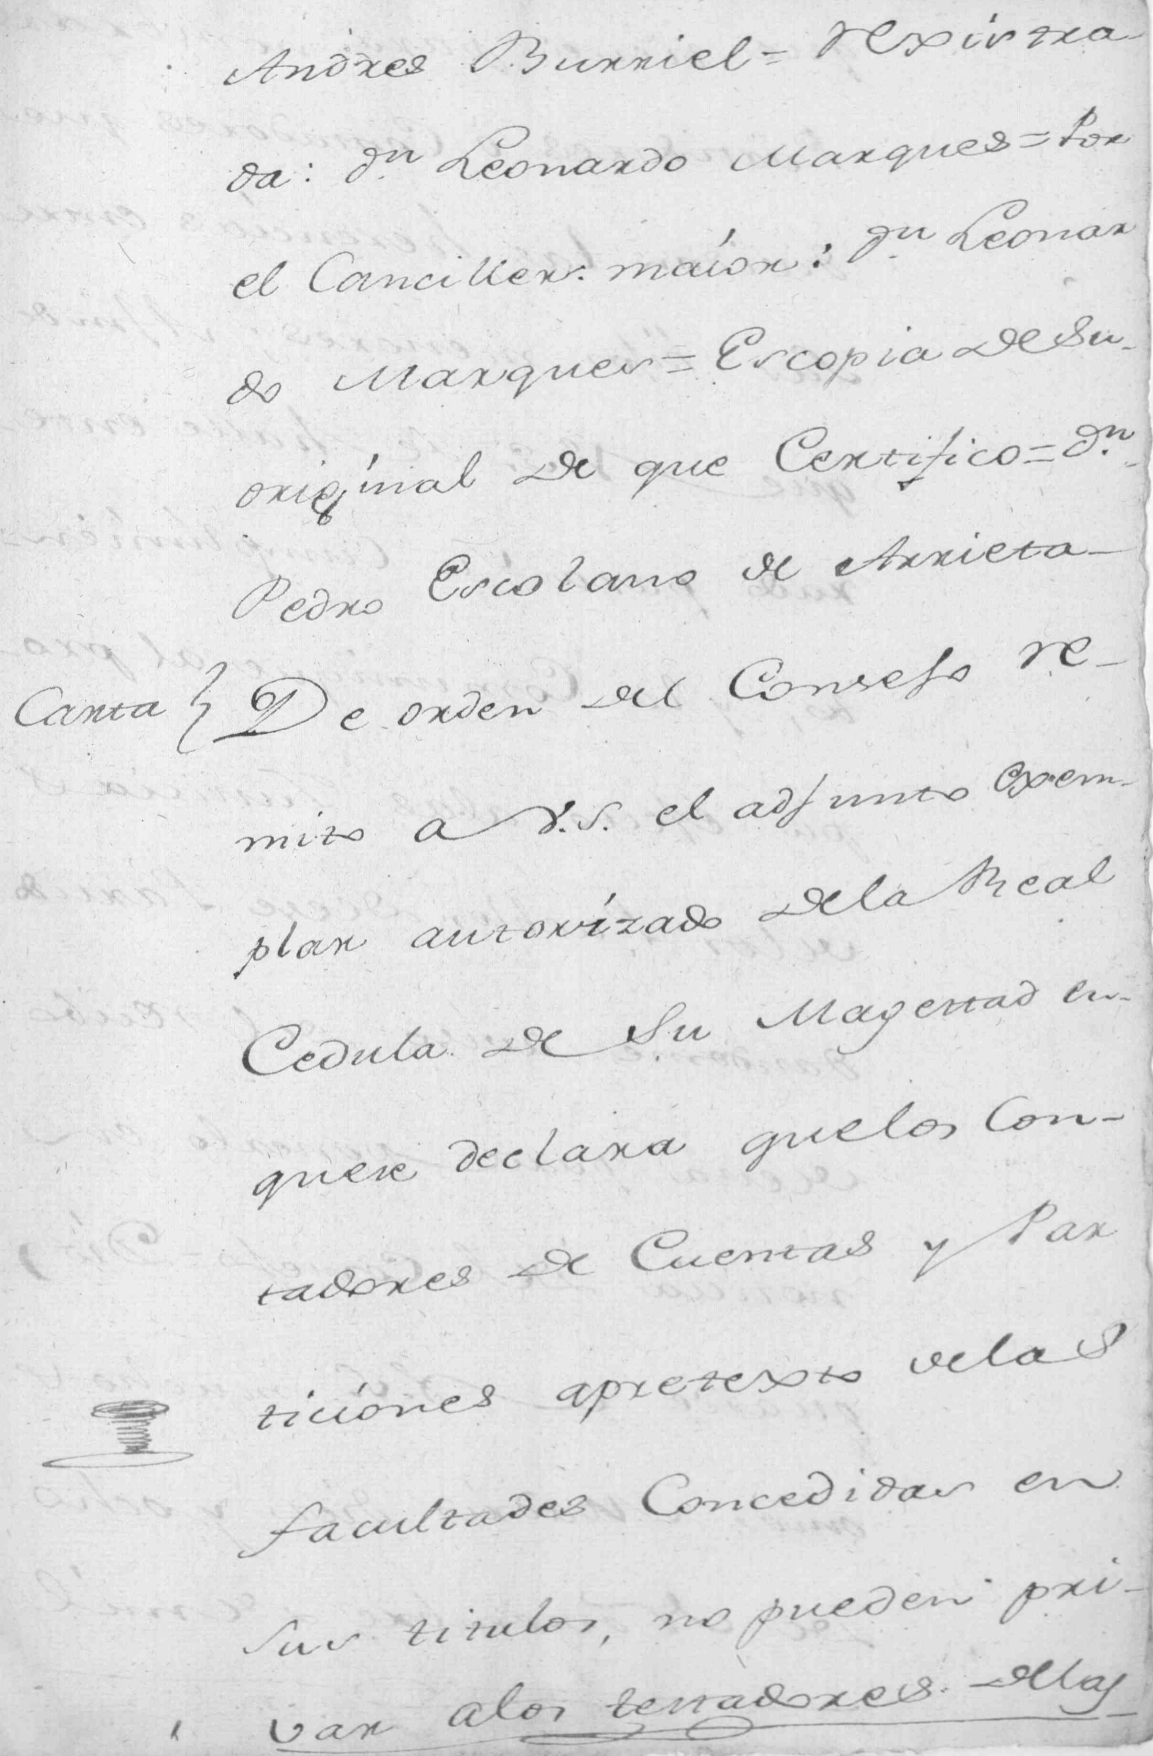 Andres Burriel = rexistra-
da: Dn. Leonardo Marques = Por
el Canciller. maíor: Dn. Leonar
do Marques = Es copia de su-
original de que Certifico = Dn.
Pedro Escolano de Arrieta-
Carta } De orden del Consejo re-
mito a V.S. el adjunto exem-
plar autorízado dela Real
Cedula de Su Magestad en-
quese declara quelos Con-
tadores de Cuentas y Par
ticíones apretexto delas
facultades Concedidas en
sus titulos, no pueden pri-
var alos testadores dela